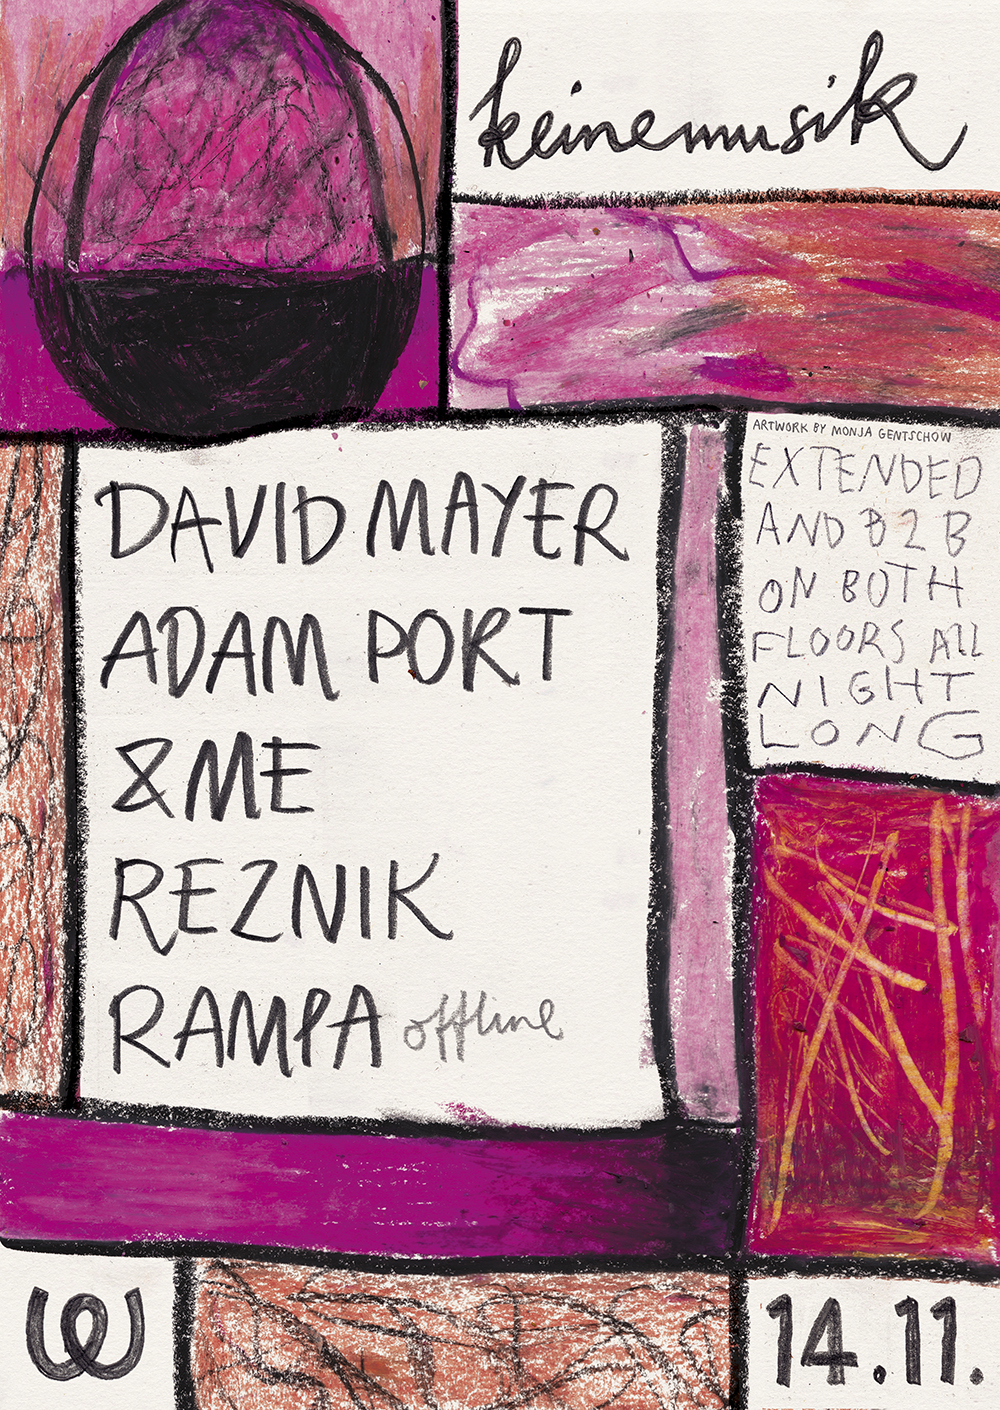 keinemusik
ARTWORK BY MONJA GENTSCHOW
EXTENDED
AND B2B
ON BOTH
FLOORS ALL
NIGHT
LONG
DAVID MAYER
ADAM PORT
&ME
REZNIK
RAMPA offline
W
14.11.